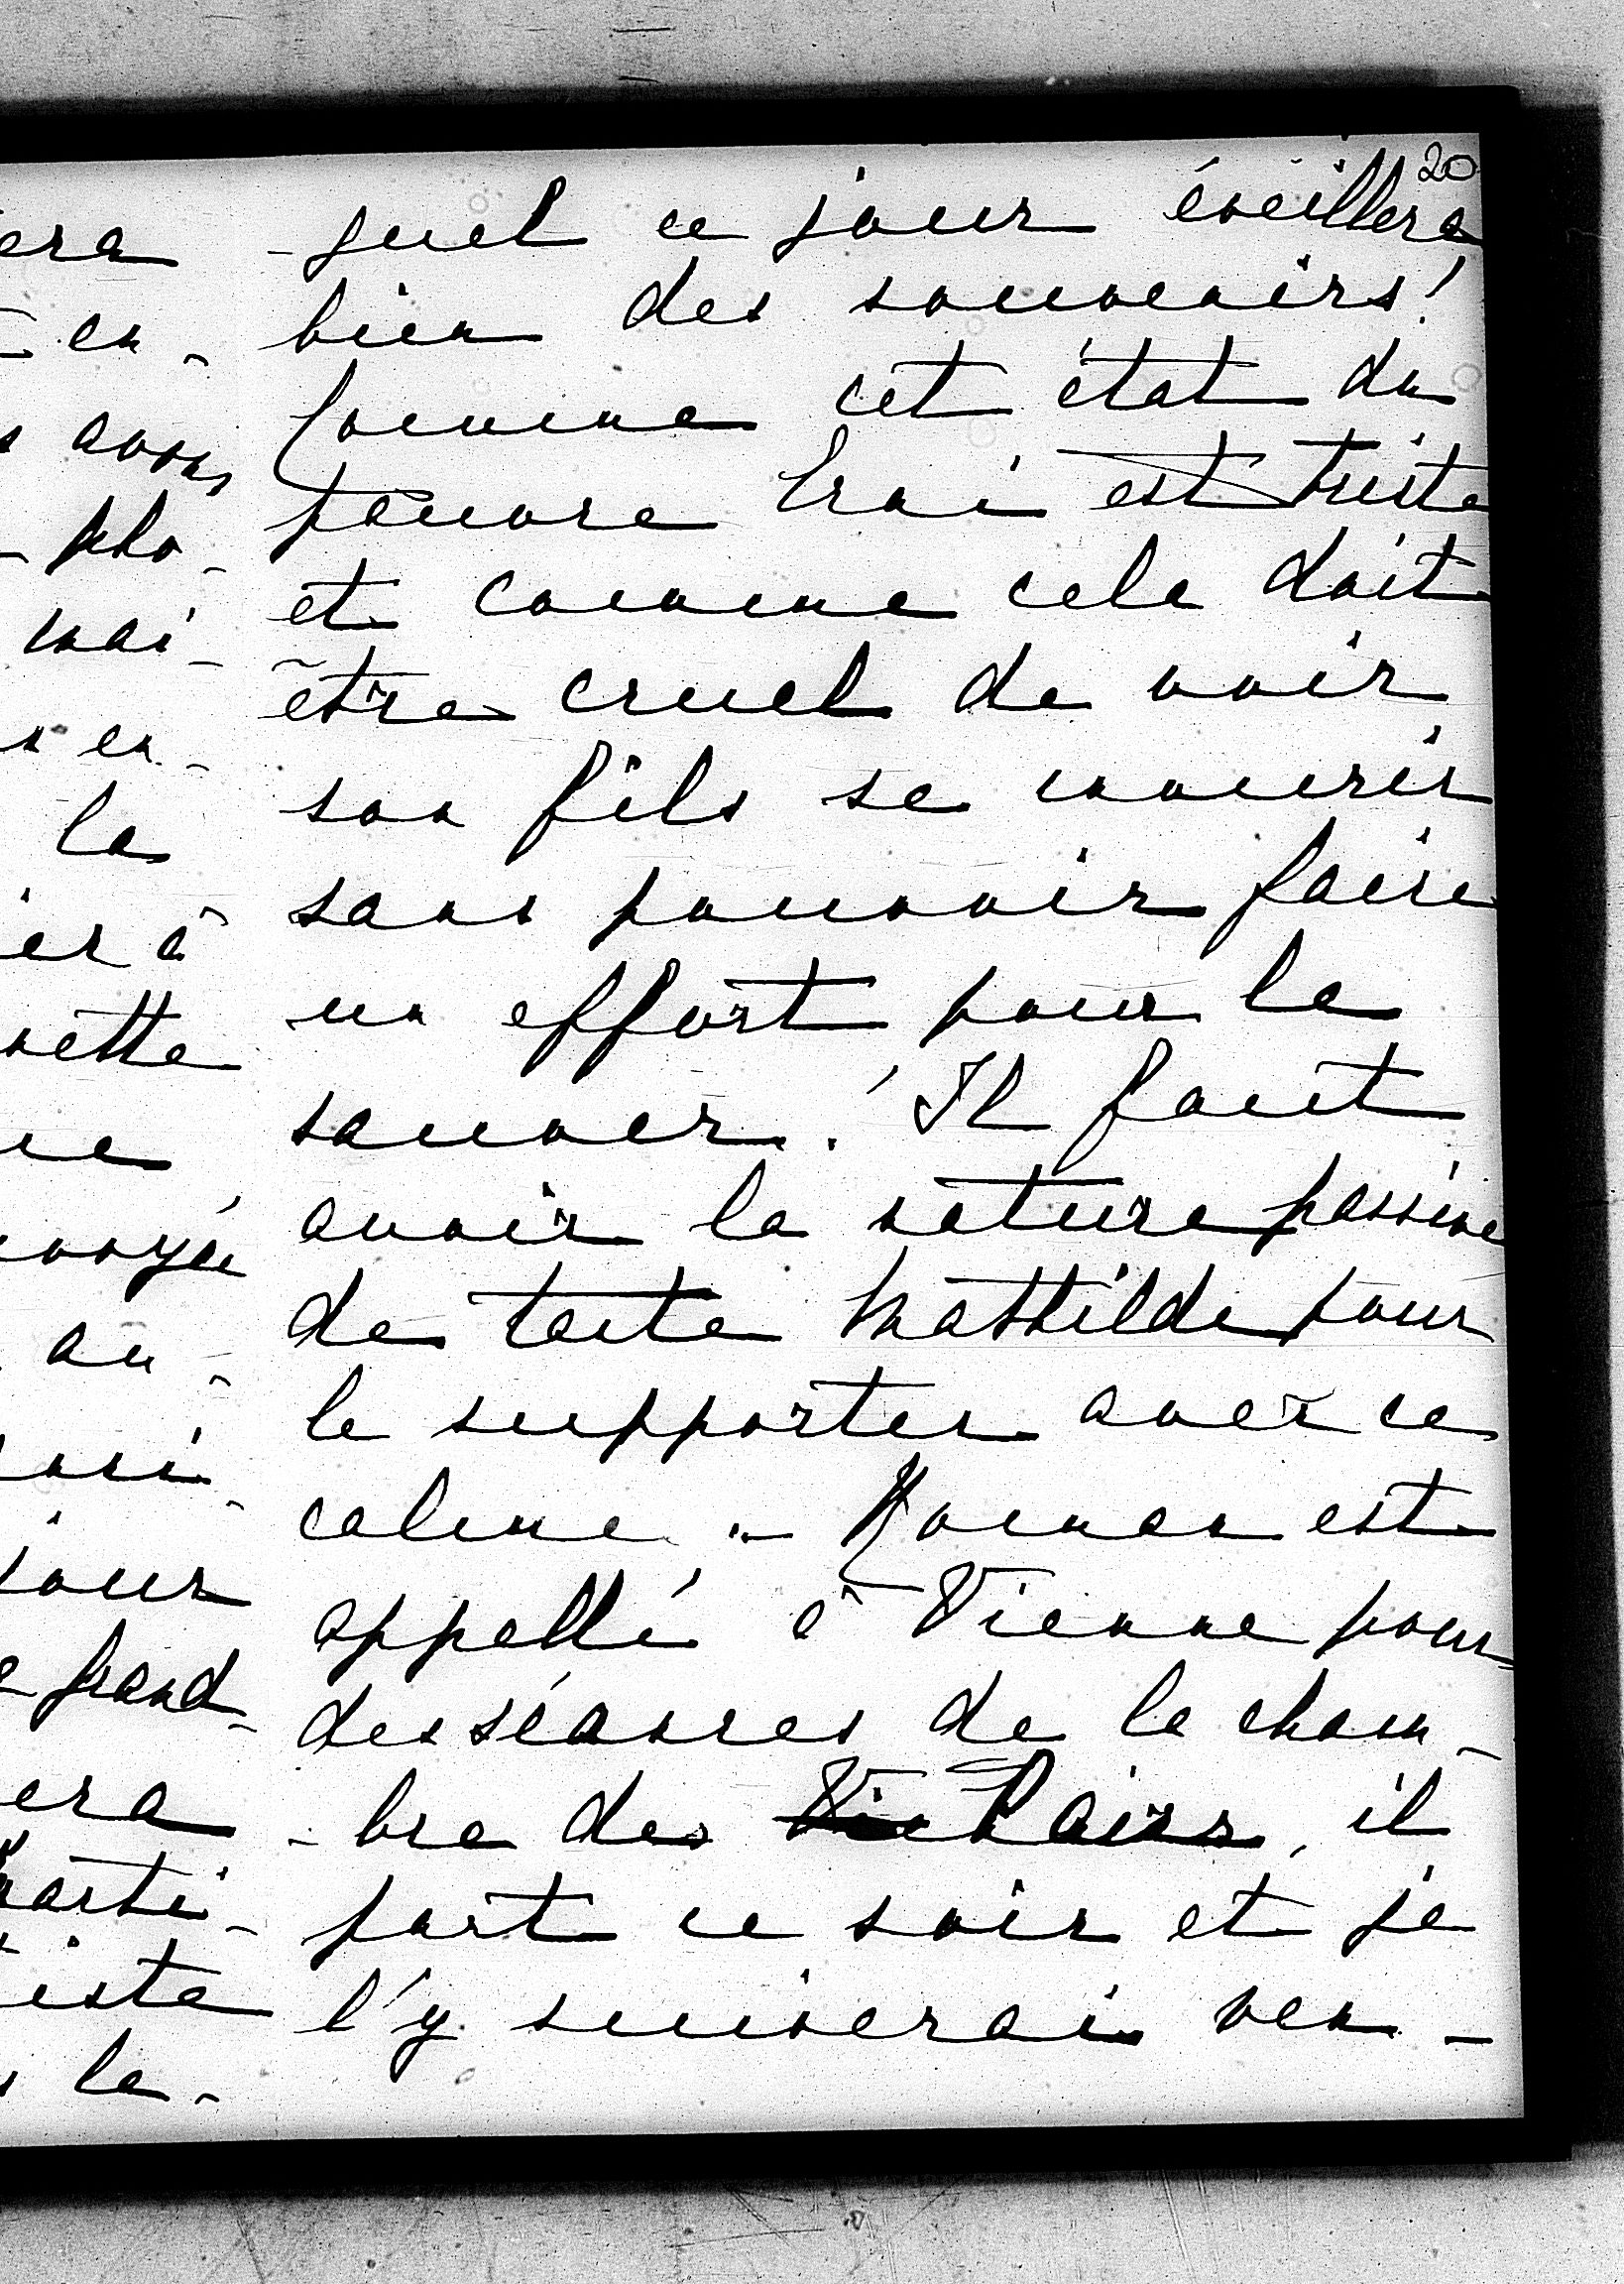 era
en-
avons
pho-
moi-
en-
la
ier à
vette
ne
au-
jour
grand-
era
parti-
iste
la-
20
-quel ce jour éveillera
bien des souvenirs!
Comme cet état du
pauvre Erni est triste
et comme cela doit
être cruel de voir
son fils se mourir
sans pouvoir faire
un effort pour le
sauver.! Il faut
avoir la nature passive
de tante Mathilde pour
le supporter avec ce
calme.- Roman est
appellé à Vienne pour
des séances de la cham-
-bre des Pairs, il
part ce soir et je
l'y suiverai ven-